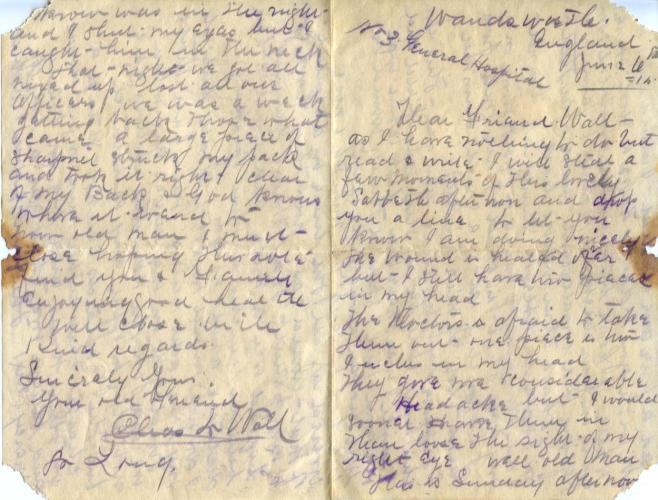 Wandswortle.
No 3 General Hospital
England
June 6
Dear Friend Walt-
as I have nothing to do but
read & write I will steal a
few moments of this lovely
Sabbeth afternoon and drop
you a line to let you
know I am doing nicely
the wound is healed over
but I still have two pieces
in my head
The Doctors is afraid to take
them out one piece is two
Inches in my head
They give me considerable
Headacke but I would
sooner Have them in
than loose the sight of my
right Eye well old man
this is Sunday afternoon
was in the right
and I shut my eyes but I
caught him in the neck
that night we got all
mixed up lost all our
officers we was a week
getting back those what
came a large piece of
sharpnel struck my pack
and took it right clear
of my Back & God knows
where it landed to
now old man I must
close hoping this will
find you &
Enjoying good health
will close with
Kind regards
Sincerly Yours
Your old friend
Chas W Wall
So Long.